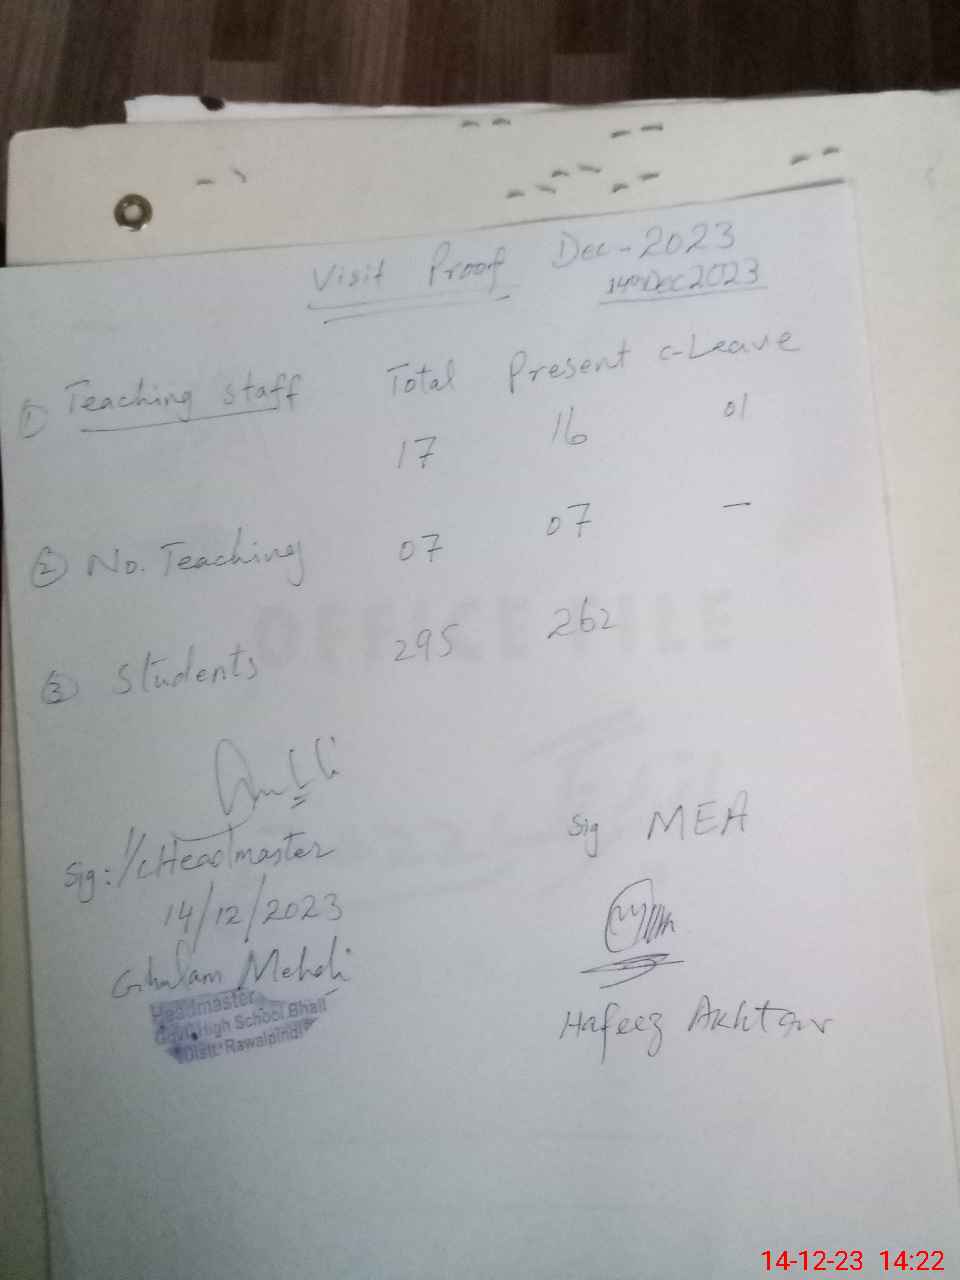 Visit Proof Dec-2023
14th Dec 2023
① Teaching Staff Total Present C-Leave
17 16 01
② No. Teaching 07 07 —
③ Students 295 262
OFFICE FILE
Sig: Headmaster
14/12/2023
Ghulam Mehdi
Headmaster
Govt. High School Bhall
Distt: Rawalpindi
Sig MEA
Hafeez Akhtar
14-12-23 14:22